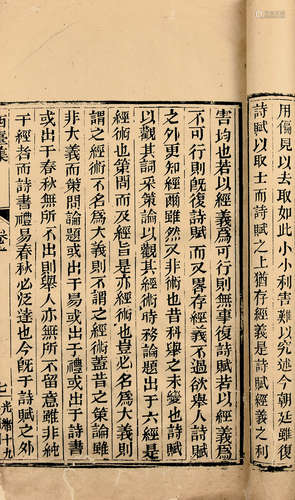 用偏見以去取如此小小利害難以究述今朝廷雖復
詩賦以取士而詩賦之上猶存經義是詩賦經義之利
害均也若以經義爲可行則無事復詩賦若以經義爲
不可行則旣復詩賦而又畧存經義不過欲舉人詩賦
之外更知經爾雖然又非術也昔科舉之未變也詩賦
以觀其詞采策論以觀其經術時務論題出于六經是
經術也策問而及經旨是亦經術也豈必名爲大義則
謂之經術不名爲大義則不謂之經術蓋昔之策論雖
非大義而策問論題或出于易或出于禮或出于詩書
或出于春秋無所不出則舉人亦無所不留意雖非純
于經者而詩書禮易春秋必泛達也今旣于詩賦之外
西臺集
卷一
七
光緒十九